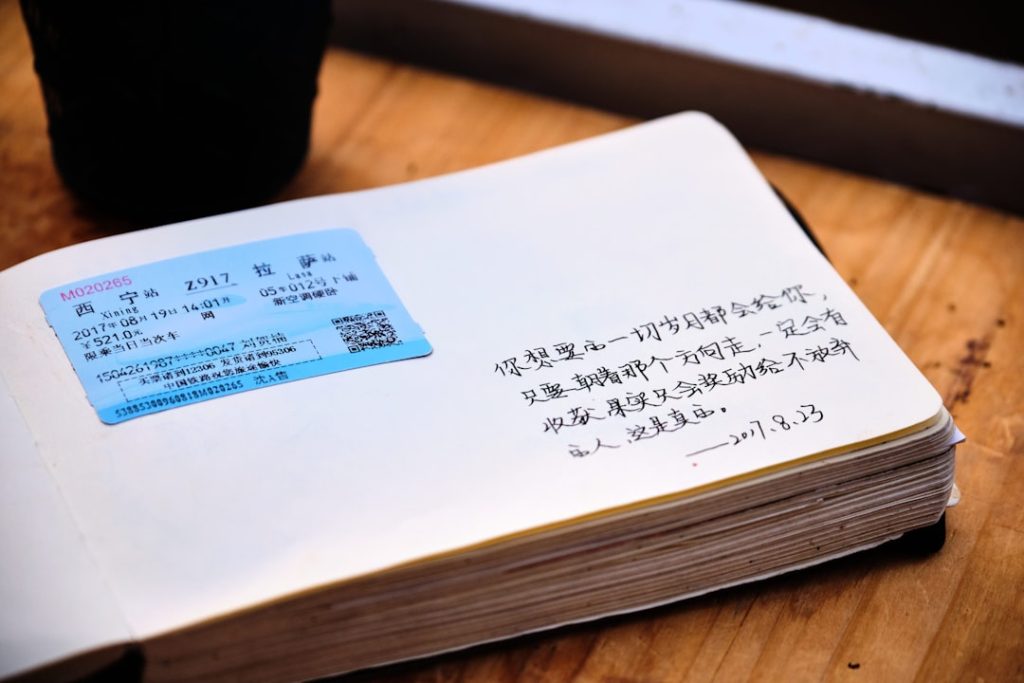 M020265
西宁站 Z917 拉萨站
Xining Lasa
2017年08月19日14:01开 05车012号下铺
¥521.0元 网 新空调硬卧
限乘当日当次车
1504261987****0047 刘贺楠
买票请到12306 发货请到95306
中国铁路祝您旅途愉快
53885300960818M020265 沈A售
你想要的一切岁月都会给你，
只要朝着那个方向走，一定会有
收获，果实只会奖励给不放弃
的人，这是真的。
——2017.8.23